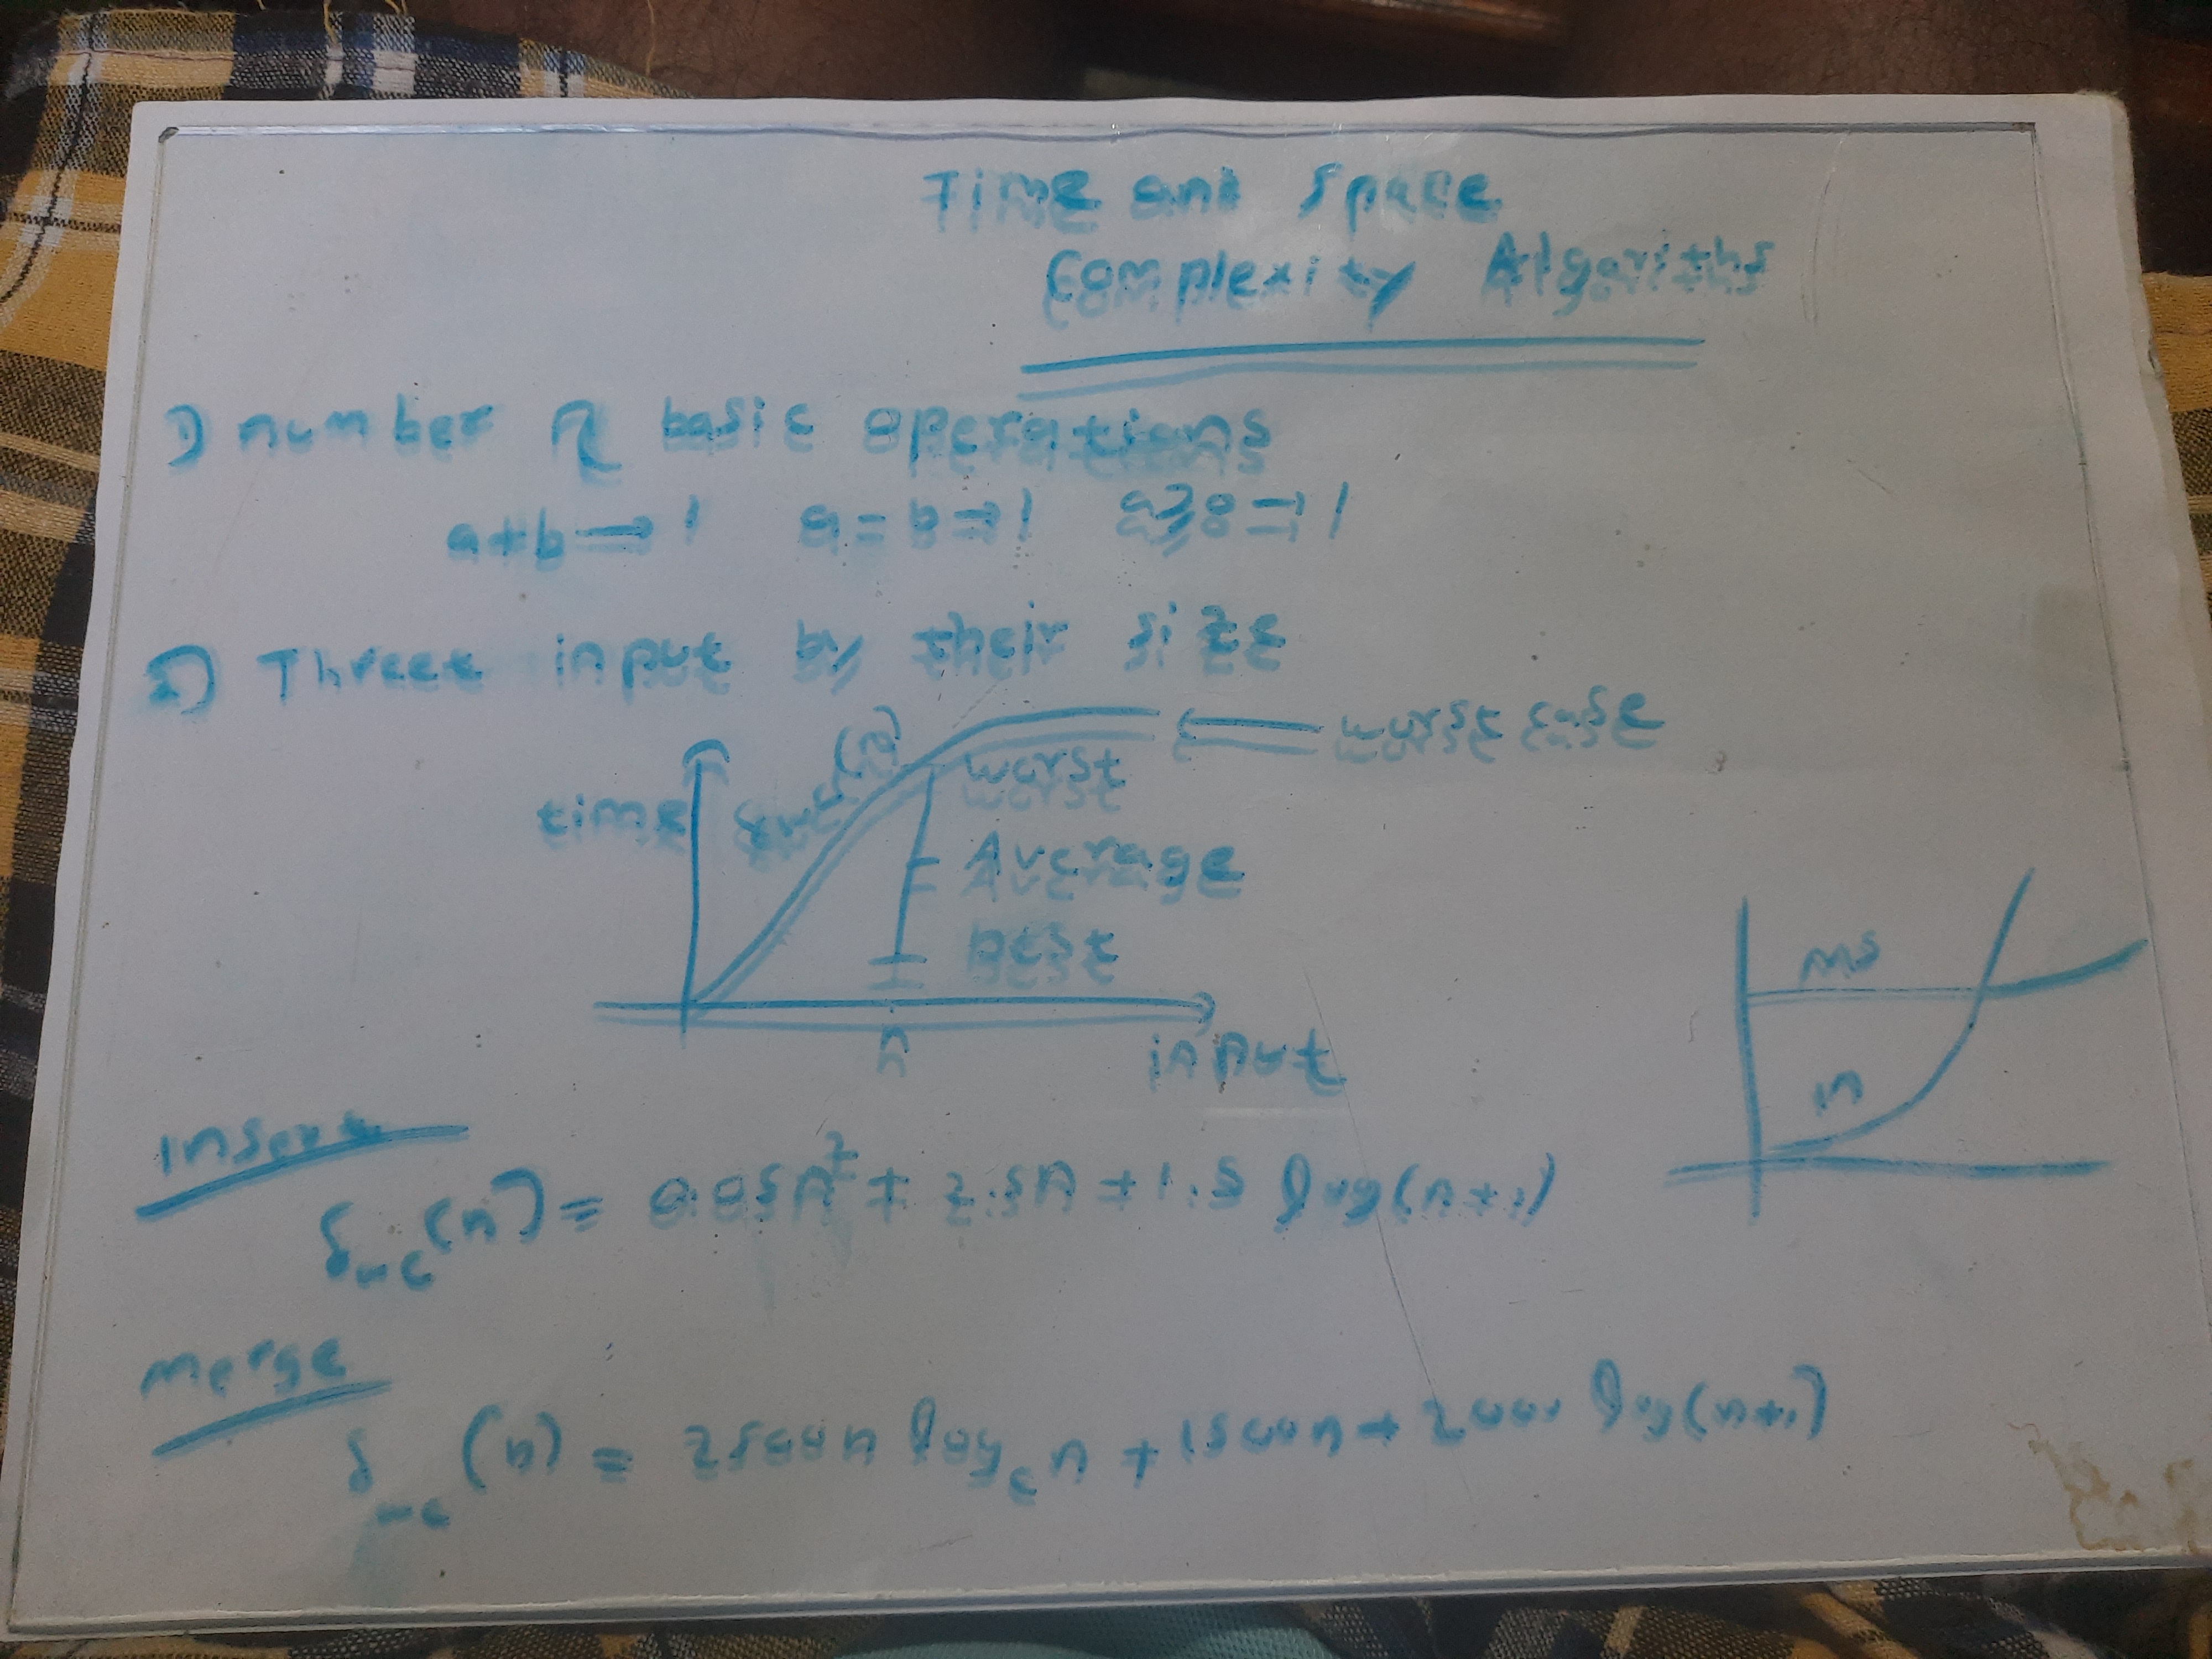 Time and Space
Complexity Algoriths
1) number of basic operations
a+b → 1 a = b → 1 a ≥ 0 → 1
2) Threet input by their size
time
(n)
worst
worst case
Average
best
n
input
ms
in
Insert
f_wc(n) = 0.05n² + 2.5n + 1.5 log(n+1)
Merge
f_wc(n) = 2500n log_e n + 1500n + 2000 log(n+1)